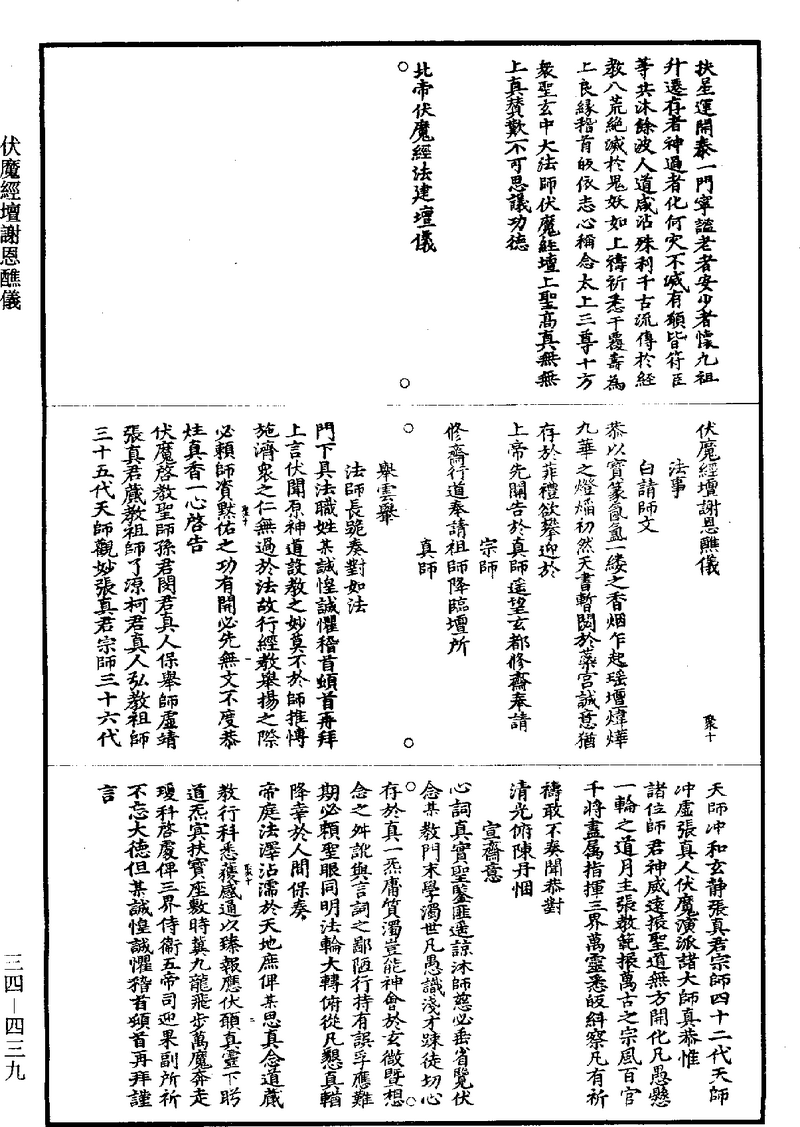 扶星運開泰一門寧謐老者安少者懷九祖
升遷存者神過者化何灾不滅有願皆符臣
等共沐餘波人道咸沾殊利千古流傳於經
教八荒絶滅於鬼妖如上禱祈悉干覆燾為
上良緣稽首皈依志心稱念太上三尊十方
衆聖玄中大法師伏魔經壇上聖高真無無
上真賛歎不可思議功德
北帝伏魔經法建壇儀
伏魔經壇謝恩醮儀
聚十
法事
白請師文
恭以寶篆氤氳一縷之香烟乍起瑶壇煒燁
九華之燈焰初然天書暫閱於蘂宮誠意猶
存於菲禮欲攀迎於
上帝先關告於真師遥望玄都修齋奉請
宗師
修齋行道奉請祖師降臨壇所
真師
舉雲轝
法師長跪奏對如法
門下具法職姓某誠惶誠懼稽首頓首再拜
上言伏聞原神道設教之妙莫不於師推博
施濟衆之仁無過於法故行經教舉揚之際
必賴師資黙佑之功有開必先無文不度恭
炷真香一心啓告
伏魔啓教聖師孫君閔君真人保舉師虛靖
張真君蔵教祖師了源柯君真人弘教祖師
三十五代天師觀妙張真君宗師三十六代
天師冲和玄静張真君宗師四十二代天師
冲虛張真人伏魔演派諸大師真恭惟
諸位師君神威逺振聖道無方開化凡愚懸
一輪之道月主張教範振萬古之宗風百官
千將盡属指揮三界萬靈悉皈糾察凡有祈
禱敢不奏聞恭對
清光俯陳丹悃
宣齋意
心詞真實聖鑒匪遥諒沐師慈必垂省覧伏
念某教門末學濁世凡愚識淺才踈徒切心
存於真一炁庸質濁豈能神會於玄微暨想
念之舛訛與言詞之鄙陋行持有誤孚應難
期必頼聖眼同明法輪大轉俯從凡懇真輜
降幸於人間保奏
帝庭法澤沾濡於天地庶俾某思真念道蔵
教行科悉獲感通以臻報應伏願真靈下盻
道炁宾扶寶座敷時冀九龍飛步萬魔奔走
瓊科啓處俾三界侍衞五帝司迎果副所祈
不忘大德但某誠惶誠懼稽首頓首再拜謹
言
伏魔經壇謝恩醮儀
三四－四三九